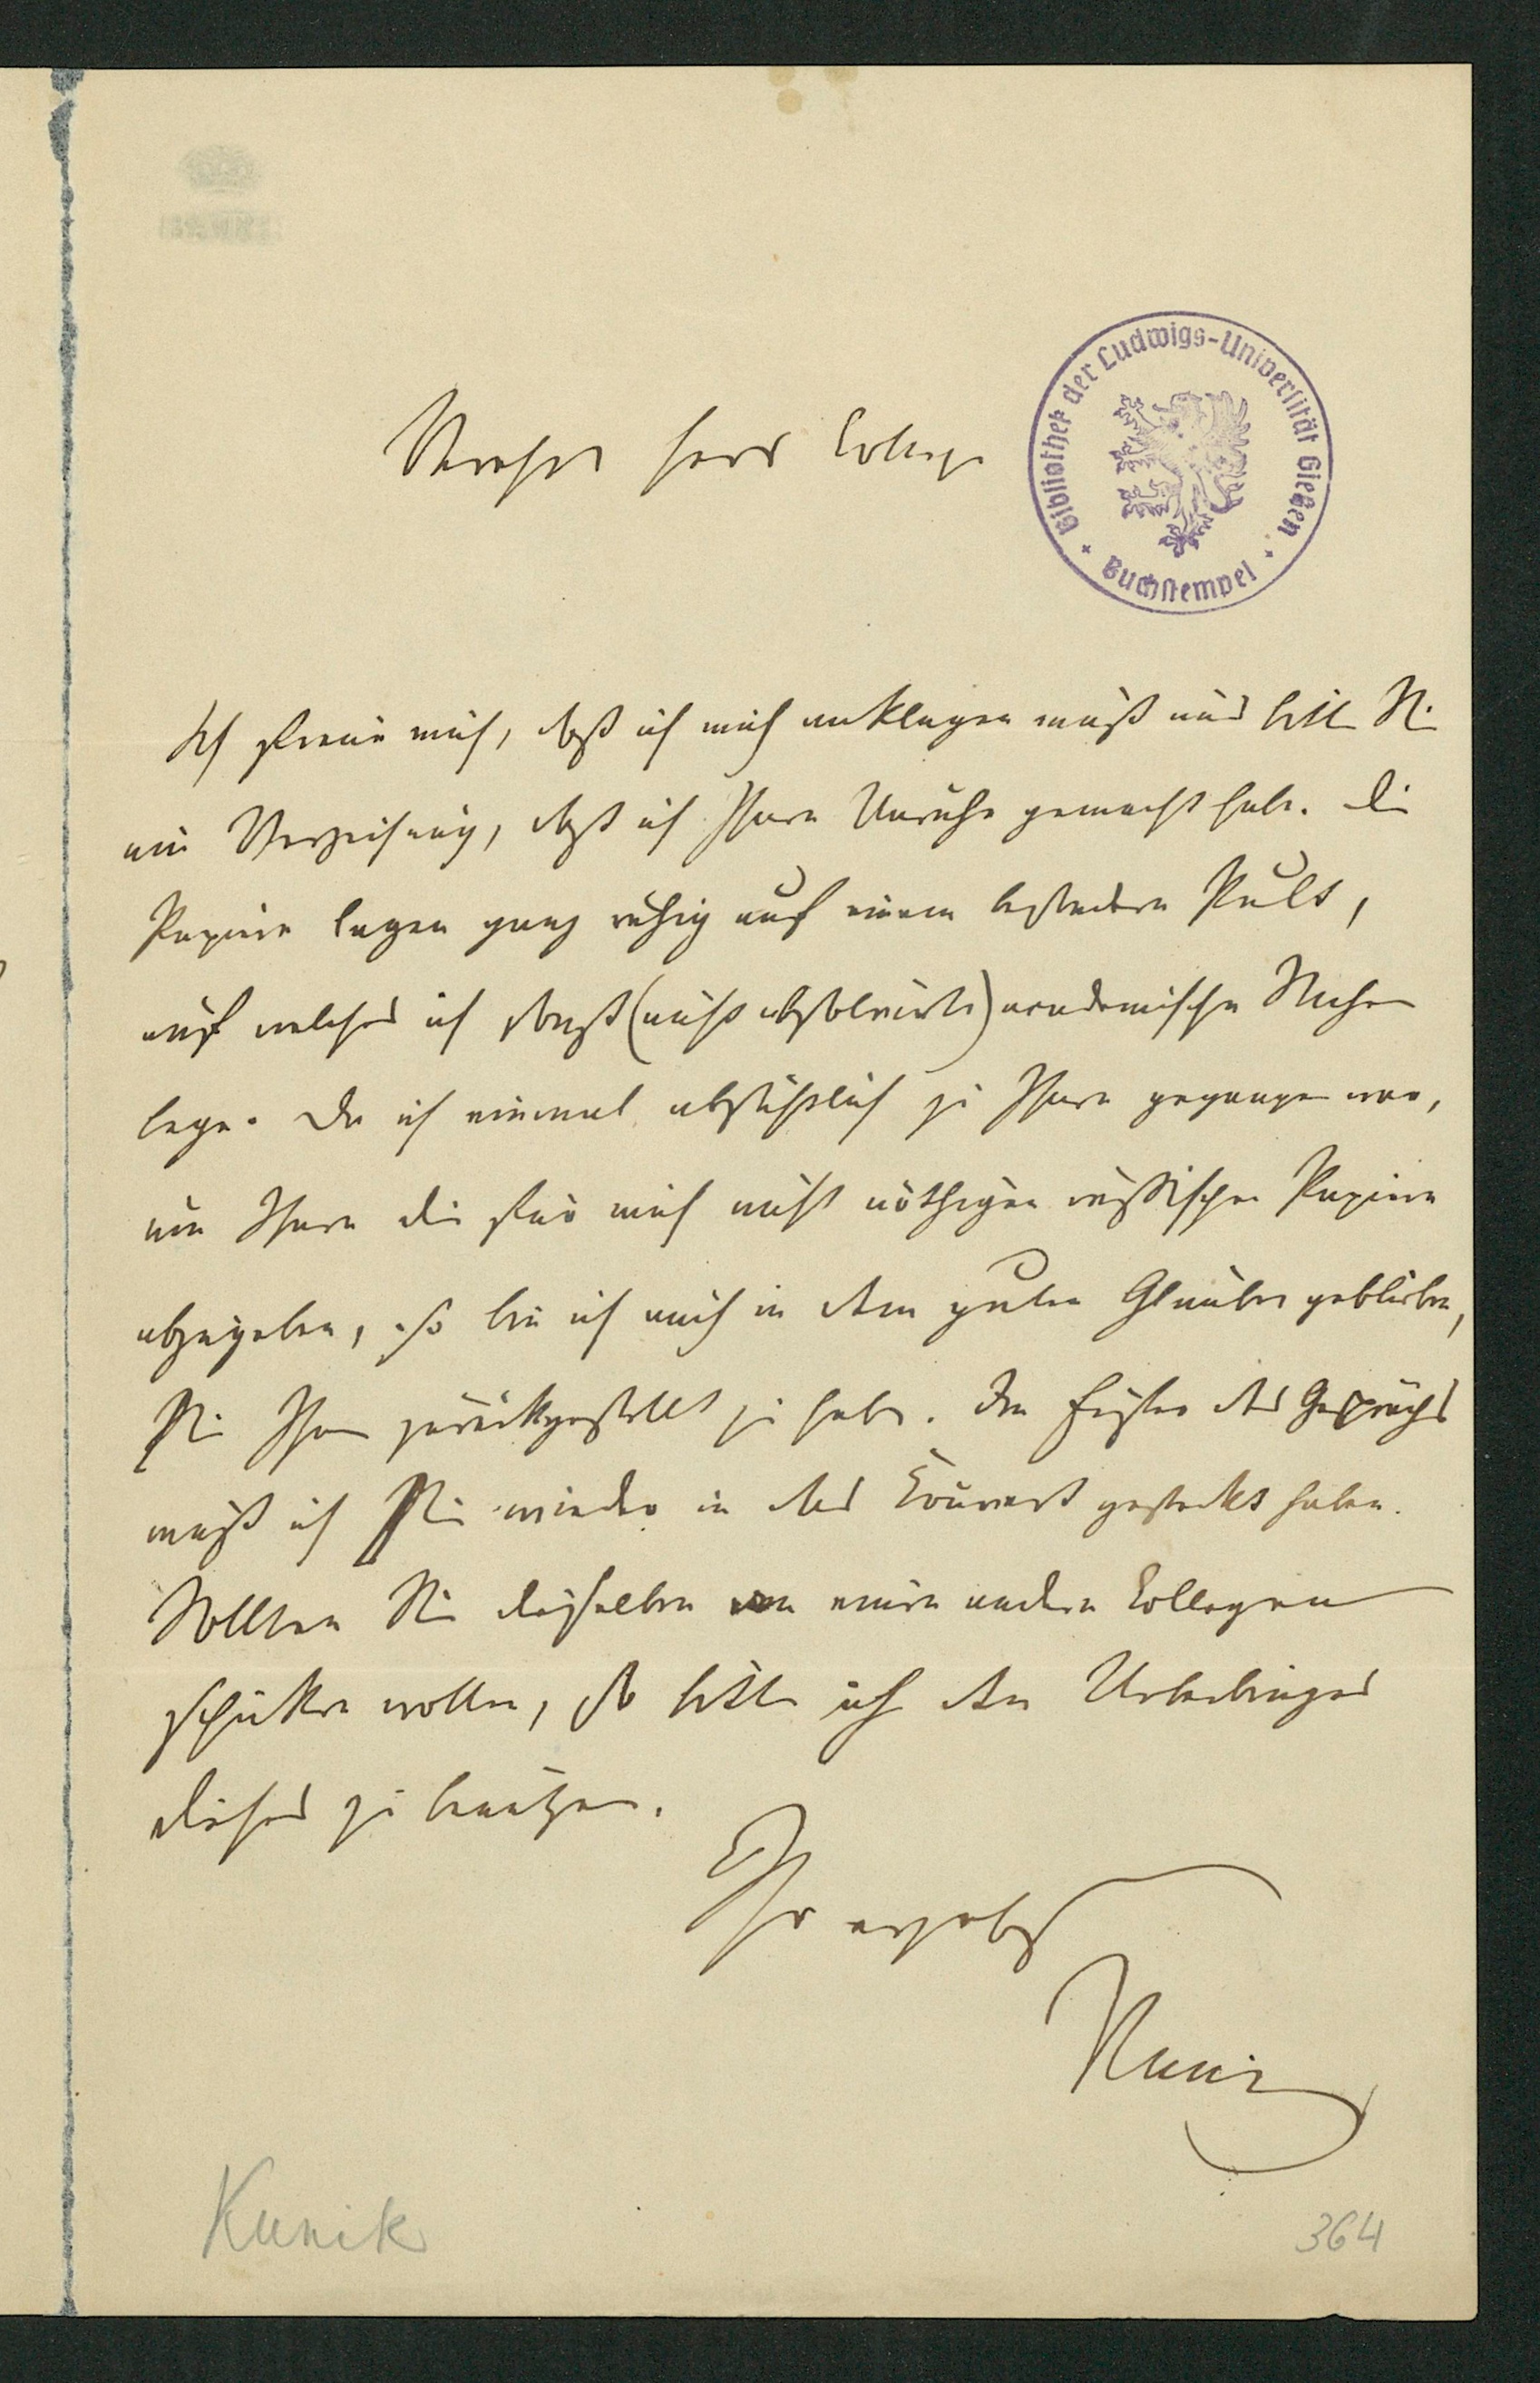 Verehrter Herr College
Bibliothek der Ludwigs-Universität Gießen
Buchstempel
Ich freue mich, daß ich mich anklagen muß und bitte Sie
um Verzeihung, daß ich Ihnen Unruhe gemacht habe. Die
Papiere lagen ganz ruhig auf einem besonderen Pult,
auf welches ich sonst (nicht absolvirte) academische Sachen
lege. Da ich einmal absichtlich zu Ihnen gegangen war,
um Ihnen die für mich nicht nöthigen russischen Papiere
abzugeben, so bin ich auch in dem guten Glauben geblieben,
Sie Ihnen zurückgestellt zu haben. Im Feuer des Gesprächs
muß ich Sie wieder in das Couvert gesteckt haben.
Sollten Sie dieselben an einen andern Collegen
schicken wollen, so bitte ich den Ueberbringer
dieses zu benutzen.
Ihr ergebenster
Kunik
Kunik
364